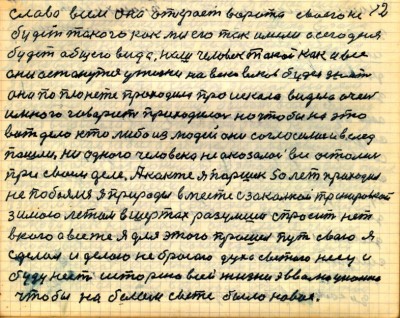 слава всем она откраєт ворота своего не 12
будет такого как мы его так имели а сегодня
будет общего вида, наш человек такой как и все
они останутся у жизни на веки веков будет знать
она по планете проходила про искала видела очень
много говорить приходилось но чтобы на это
вот дело кто либо из людей они согласилися вслед
пошли, ни одного человека не оказалось все остались
при своем деле. А как те я Паршек 50 лет приходил
не побоялся я природы вместе с закалкой тренировкой
зимою летом в шортах разумши спросить нет
в кого а все те я для этого прошел путь своего я
сделал и делаю не бросаю духа святого несу и
буду нести историю всей жизни я эволюционно
чтобы на белом свете было новое.